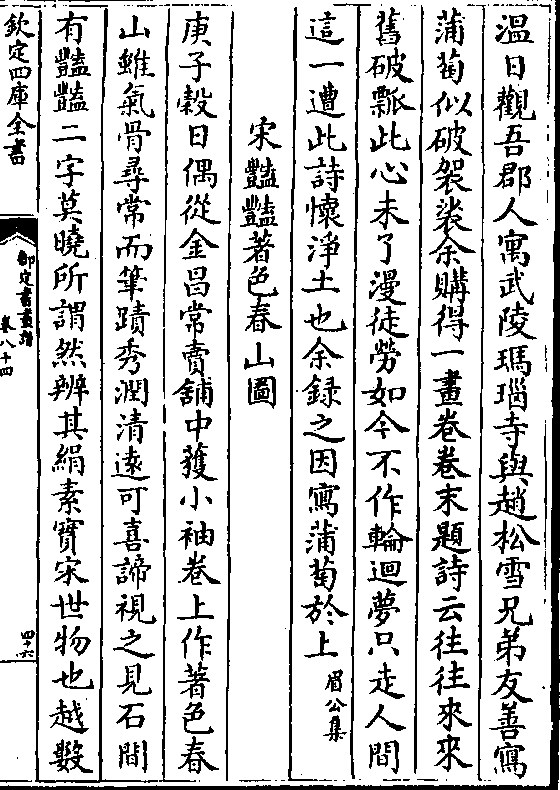 溫日觀吾郡人寓武陵瑪瑙寺與趙松雪兄弟友善寫
蒲萄似破袈裟余購得一畫卷卷末題詩云往往來來
舊破瓢此心未了漫徒勞如今不作輪迴夢只走人間
這一遭此詩懷淨土也余録之因寫蒲萄於上眉公集
宋豔豔著色春山圖
庚子穀日偶從金昌常賣舖中獲小袖卷上作著色春
山雖氣骨尋常而筆蹟秀潤清遠可喜諦視之見石間
有豔豔二字莫曉所謂然辨其絹素實宋世物也越數
欽定四庫全書
御定書畫譜
卷八十四
四十六